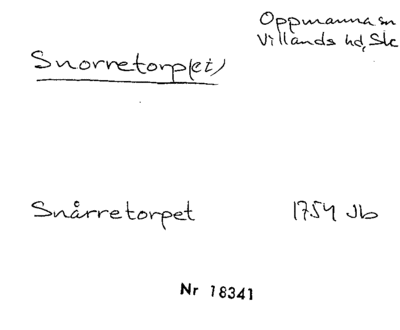 Oppmanna sn
Villands hd, Sk
Snorretorp(et)
Snårretorpet 1754 Jb
Nr 18341